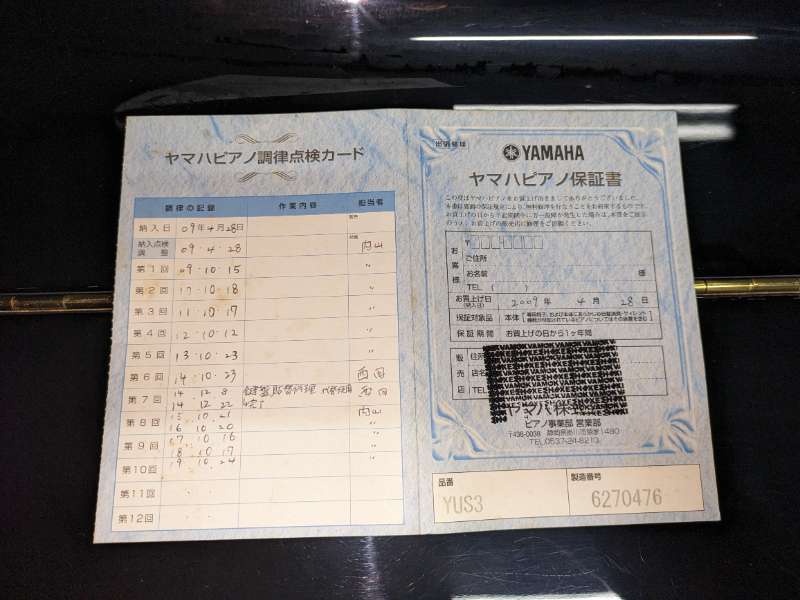 ヤマハピアノ調律点検カード
調律の記録 作業内容 担当者
納入日 09年4月28日
納入点検調整 09・4・28 内山
第1回 09・10・15 〃
第2回 10・18 〃
第3回 11・10・17 〃
第4回 12・10・12 〃
第5回 13・10・23 〃
第6回 14・10・23
第7回 14 12 8
14 12 22 完了
内山
第8回 15 10 21
16 10 20 〃
第9回 17 10 16 〃
18 10 17
第10回 19 10 24
第11回
第12回
YAMAHA
ヤマハピアノ保証書
お客様
〒
ご住所
お名前 様
TEL ( )
お買上げ日(納入日) 2009年 4月 28日
保証対象品 本体
保証期間 お買上げの日から1ヶ年間
販売店
住所
TEL
ヤマハ株
ピアノ事業部 営業部
TEL.0537-24-8213
品番 製造番号
YUS3 6270476